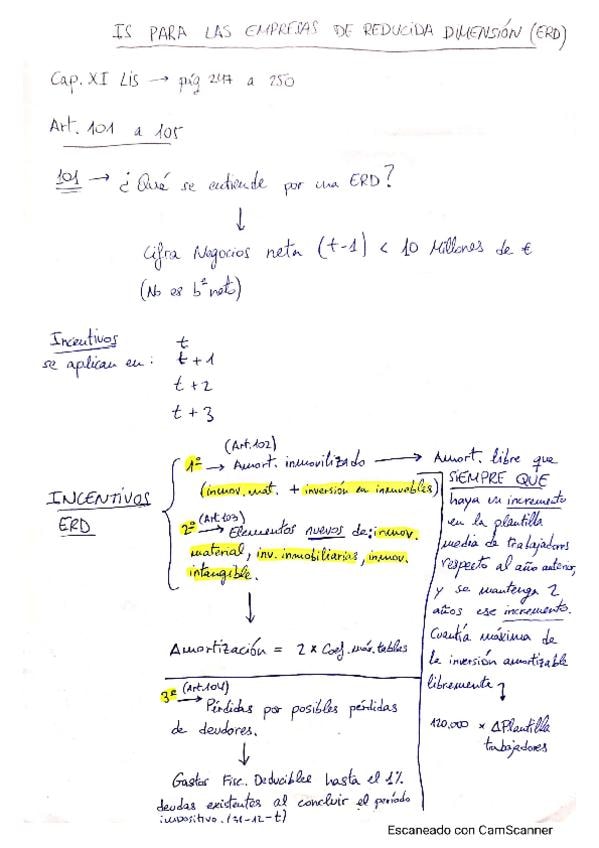 IS PARA LAS EMPRESAS DE REDUCIDA DIMENSIÓN (ERD)
Cap. XI LIS → pág 247 a 250
Art. 101 a 105
101 → ¿Qué se entiende por una ERD?
↓
Cifra Negocios neta (t-1) < 10 Millones de €
(No es bº neto)
Incentivos
se aplican en:
t
t + 1
t + 2
t + 3
INCENTIVOS
ERD
(Art.102)
1º → Amort. inmovilizado →
(inmov. mat. + inversión en inmuebles)
2º (Art.103) → Elementos nuevos de: inmov.
material, inv. inmobiliarias, inmov.
intangible.
↓
Amortización = 2 x Coef. máx. tablas
3º (Art.104) → Pérdidas por posibles pérdidas
de deudores.
↓
Gastos Fisc. Deducibles hasta el 1%
deudas existentes al concluir el período
impositivo. (31-12-t)
Amort. libre que
SIEMPRE QUE
haya un incremento
en la plantilla
media de trabajadores
respecto al año anterior,
y se mantenga 2
años ese incremento.
Cuantía máxima de
la inversión amortizable
libremente
120.000 x ΔPlantilla
trabajadores
Escaneado con CamScanner